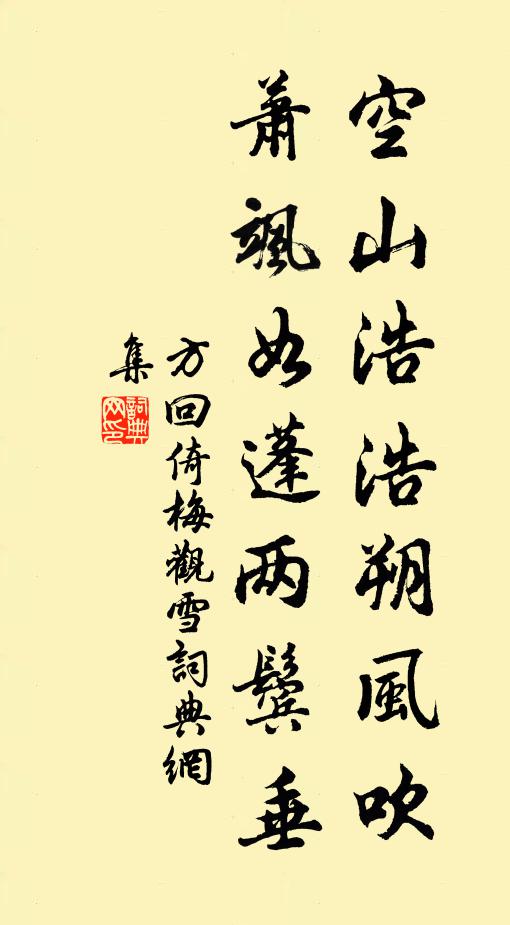 空山浩浩朔風吹
蕭颯如蓬两鬓垂
方回倚梅觀雪詞典網
集
詞典网印